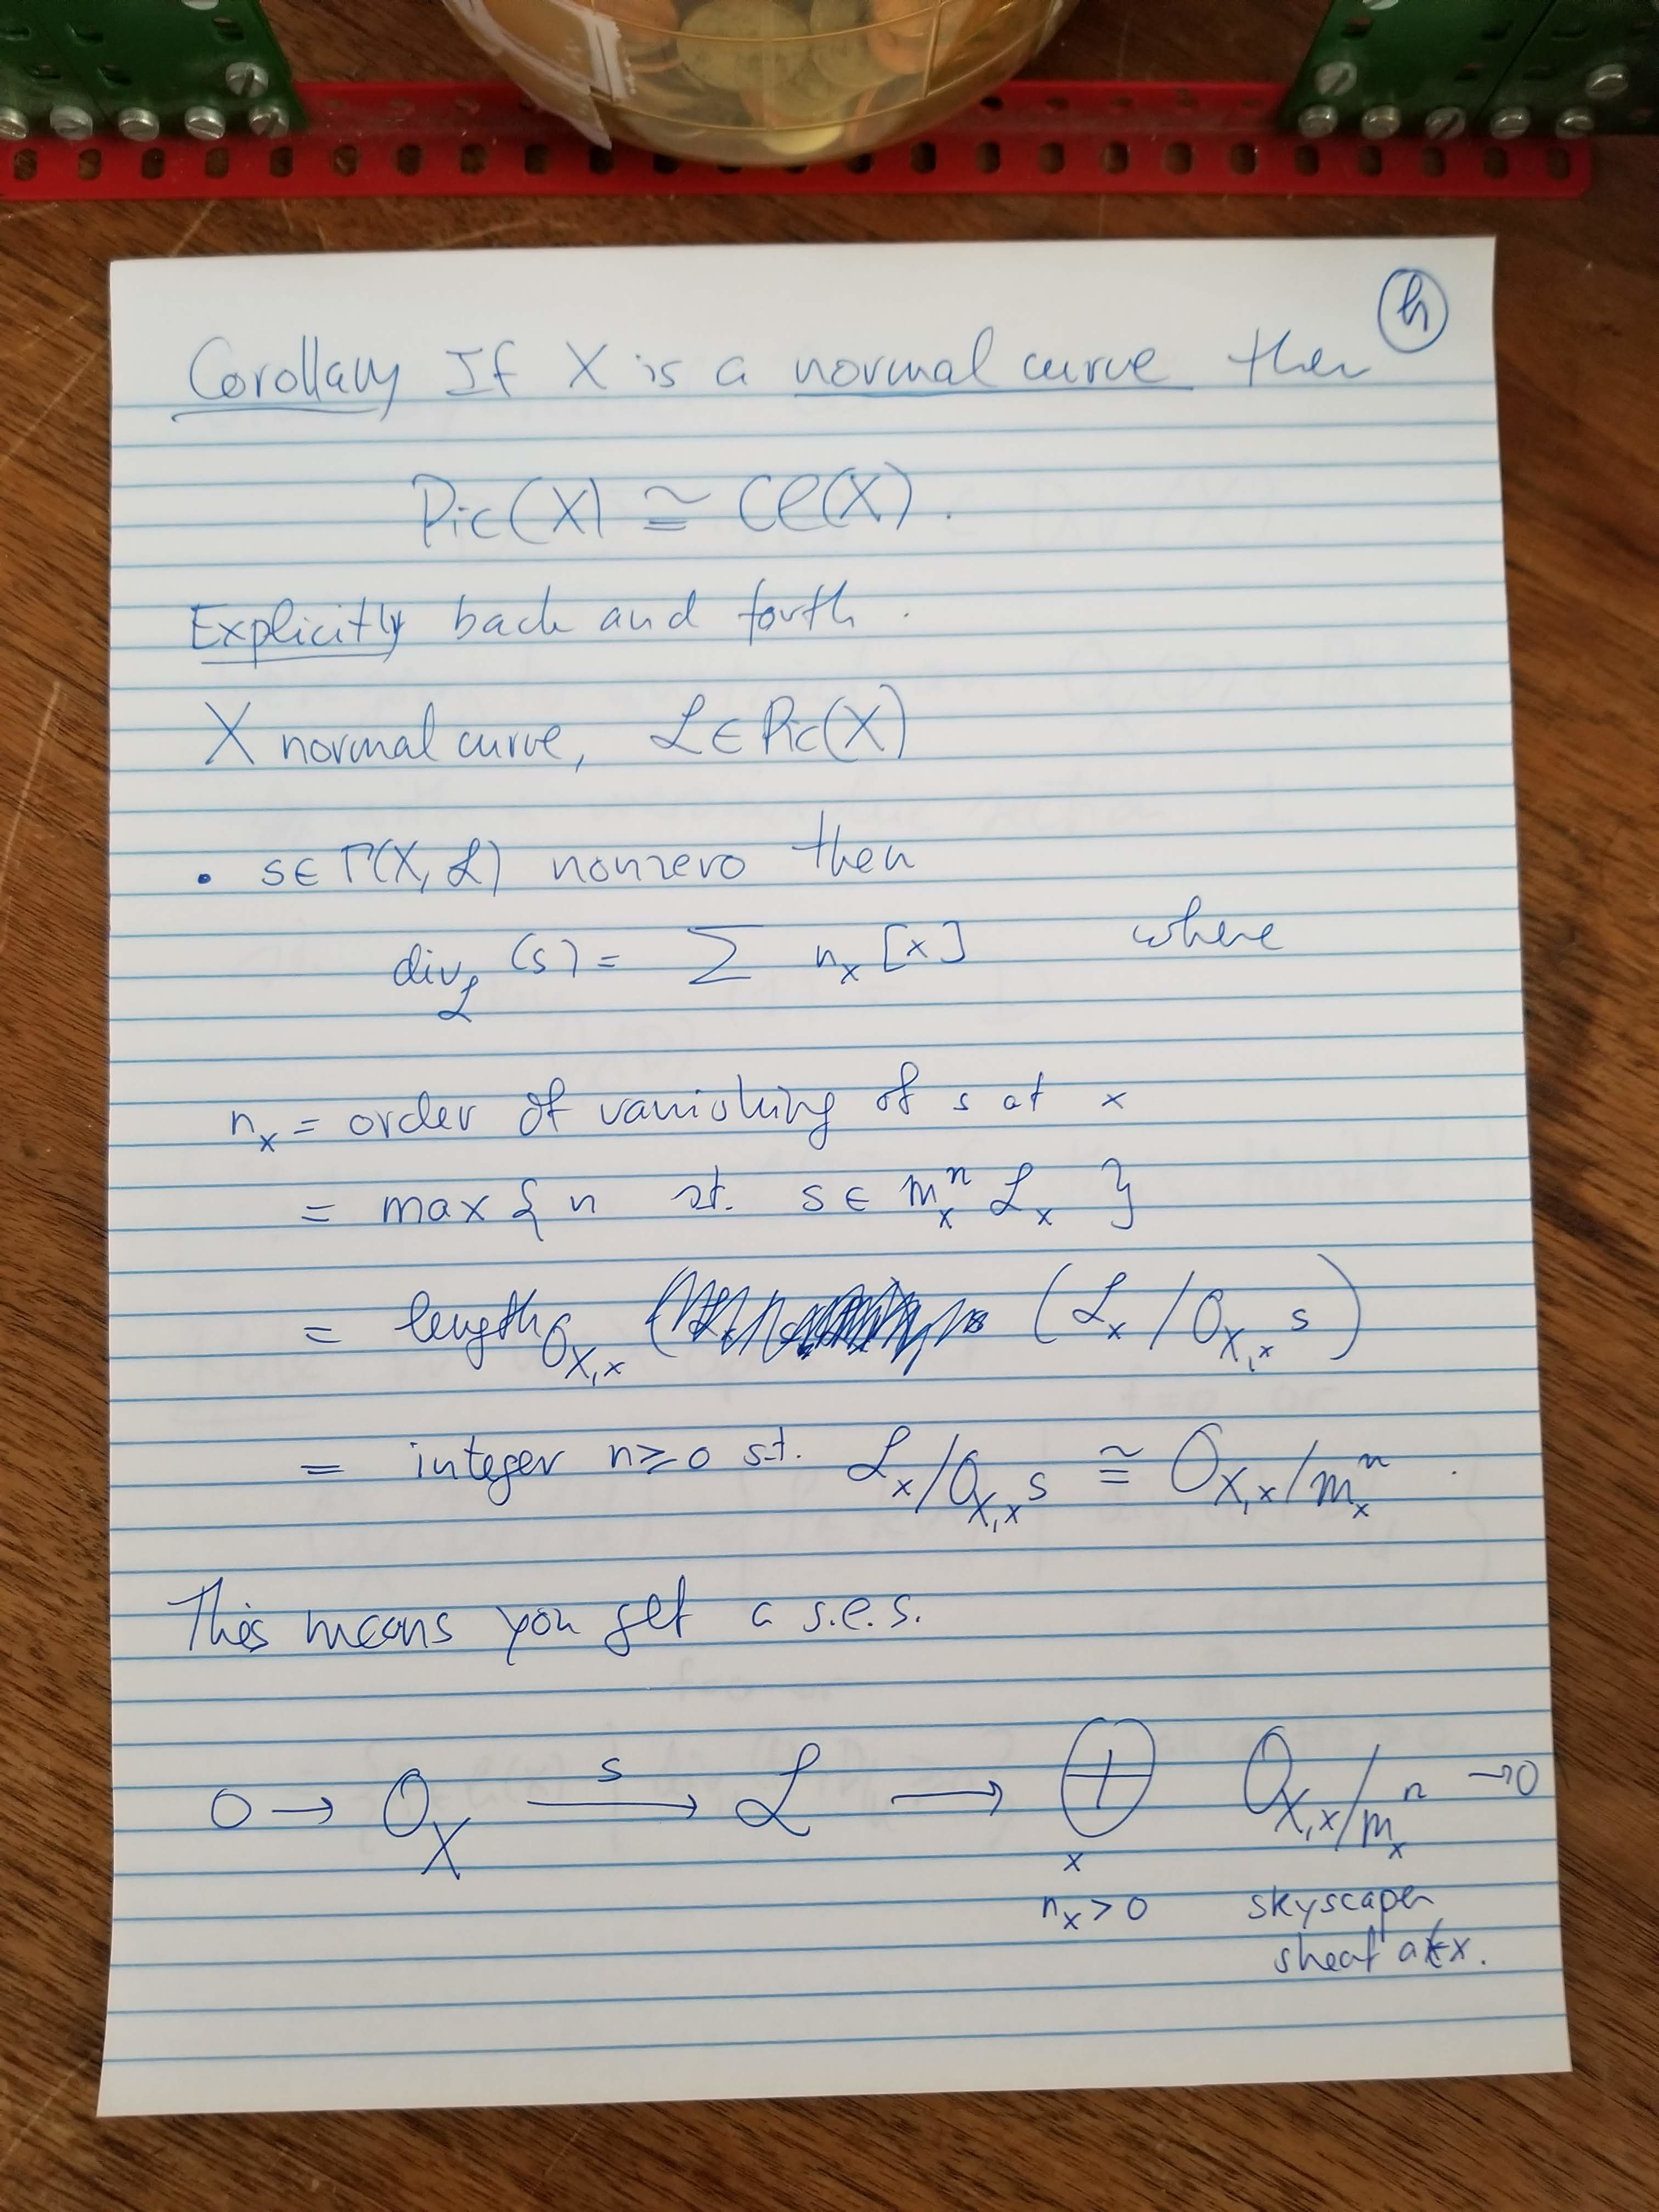 h
Corollary If X is a normal curve then
Pic(X) ≅ Cl(X).
Explicitly back and forth.
X normal curve, ℒ ∈ Pic(X)
• s ∈ Γ(X, ℒ) nonzero then
div_ℒ (s) = ∑ n_x [x] where
n_x = order of vanishing of s at x
= max { n st. s ∈ m_x^n ℒ_x }
= length_{O_{X,x}} (ℒ_x / O_{X,x} s)
= integer n ≥ 0 s.t. ℒ_x/O_{X,x} s ≅ O_{X,x}/m_x^n .
This means you get a s.e.s.
0 → O_X —s→ ℒ → ⊕ O_{X,x}/m_x^n → 0
x
n_x > 0 skyscaper
sheaf at x.